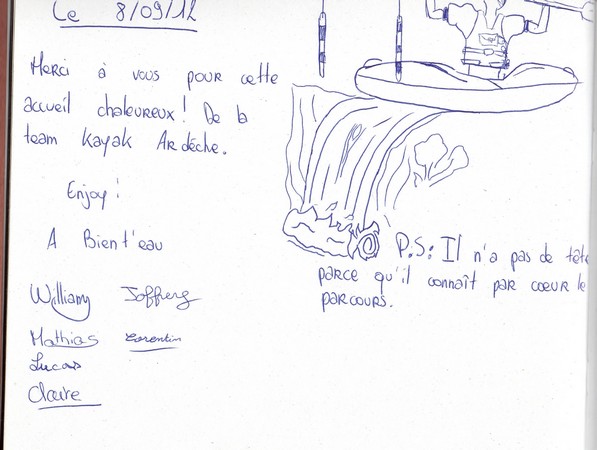 Le 8/09/12
Merci à vous pour cette
accueil chaleureux! De la
team Kayak Ardèche.
Enjoy!
A Bient'eau
William Joffrey
Mathias Corentin
Lucas
Claire
P.S: Il n'a pas de tête
parce qu'il connaît par coeur le
parcours.